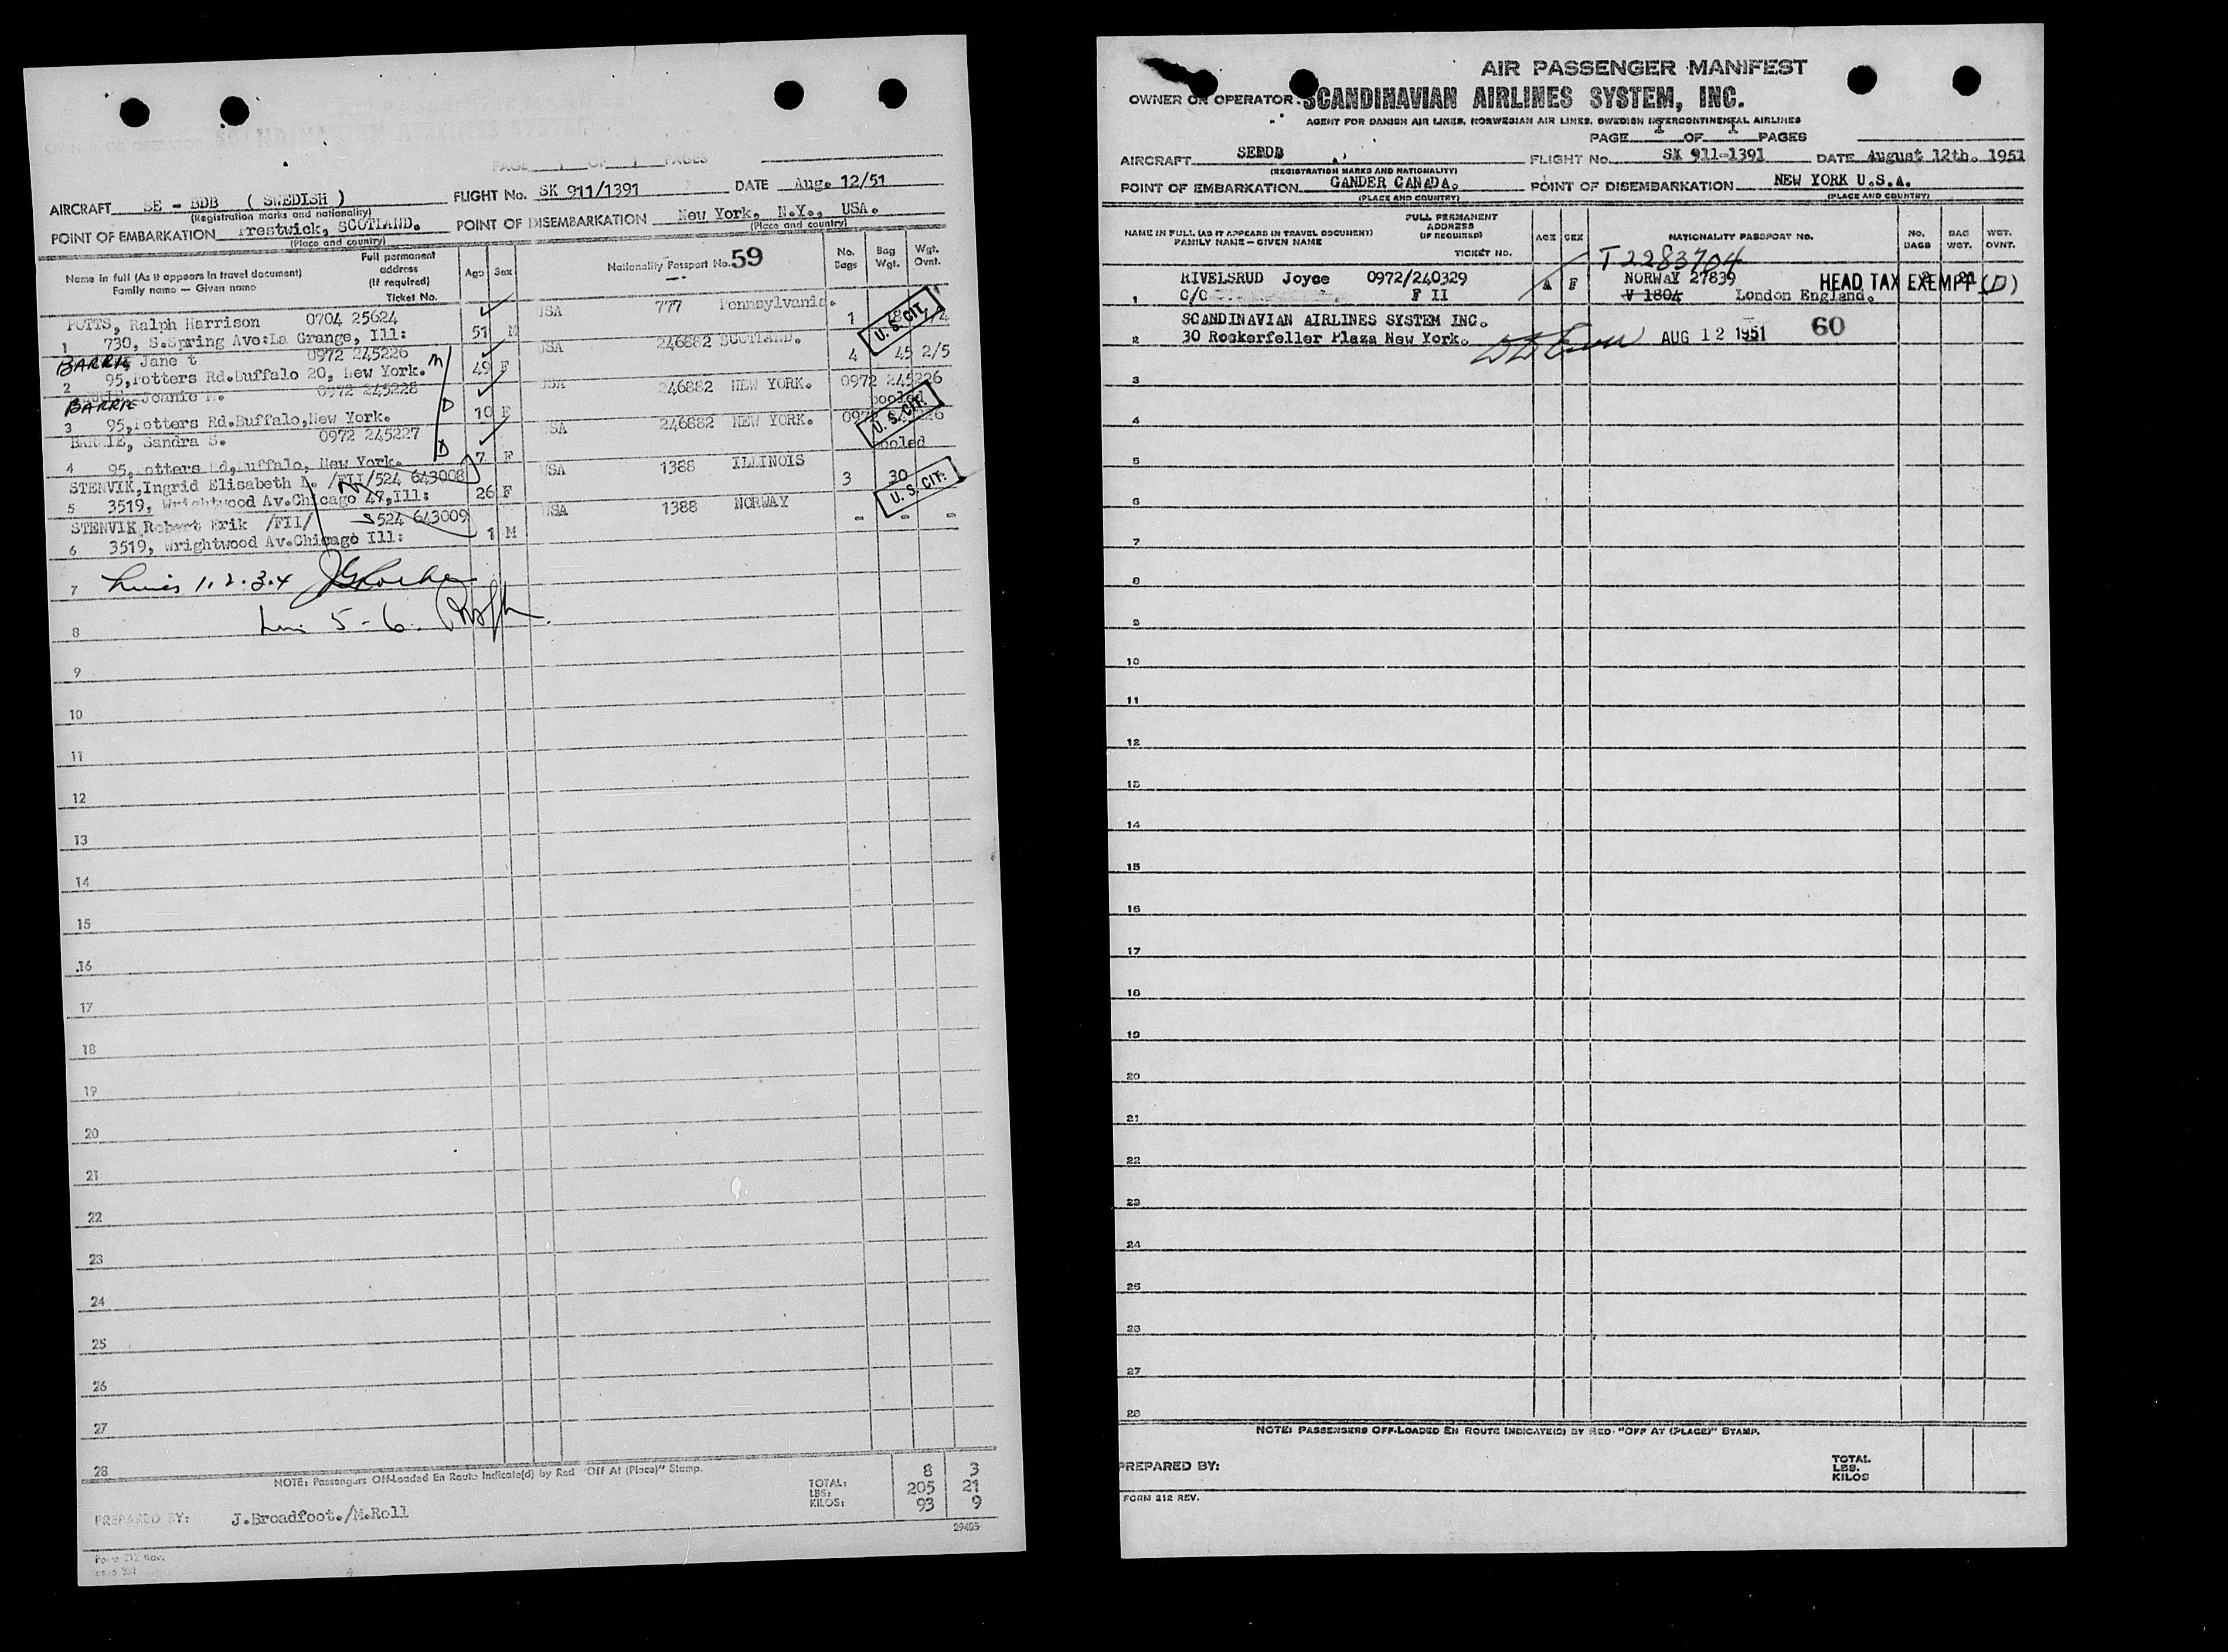 PAGE 1 OF 1 PAGES
AIRCRAFT SE - BDB ( SWEDISH ) FLIGHT No. SK 911/1391 DATE Aug. 12/51
(Registration marks and nationality)
POINT OF EMBARKATION Prestwick, SCOTLAND. POINT OF DISEMBARKATION New York, N.Y., USA.
(Place and country) (Place and country)
Name in full (As it appears in travel document) Family name — Given name Full permanent address (If required) Ticket No. Age Sex Nationality Passport No. 59 No. Bags Bag Wgt. Wgt. Ovnt.
POTTS, Ralph Harrison 0704 25624 USA 777 Pennsylvania.
1 730, S.Spring Ave:La Grange, Ill: 51 M 1 U. S. CIT.
BARRIE Jane t 0972 245226 M USA 246882 SCOTLAND.
2 95, Potters Rd.Buffalo 20, New York. 49 F 4 45 2/5
BARRIE, Joanie M. 0972 245228 USA 246882 NEW YORK. 0972 245226
3 95, Potters Rd.Buffalo,New York. D 10 F pooled U. S. CIT.
BARRIE, Sandra S. 0972 245227 USA 246882 NEW YORK. 0972 245226
4 95, Potters Rd,Buffalo, New York. D 7 F pooled
STENVIK,Ingrid Elisabeth /FII/524 643008 USA 1388 ILLINOIS
5 3519, Wrightwood Av.Chicago 47,Ill: 26 F 3 30 U. S. CIT.
STENVIK Robert Erik /FII/ S524 643009 USA 1388 NORWAY
6 3519, Wrightwood Av.Chicago Ill: 1 M - - -
7 Lines 1. 2. 3. 4
8 5 - 6.
9
10
11
12
13
14
15
16
17
18
19
20
21
22
23
24
25
26
27
28
NOTE: Passengers Off-Loaded En Route Indicate(d) by Red "Off At (Place)" Stamp.
TOTAL: 8 3
LBS: 205 21
KILOS: 93 9
PREPARED BY: J.Broadfoot./M.Roll
29405
Form 212 Rev.
AIR PASSENGER MANIFEST
OWNER OR OPERATOR: SCANDINAVIAN AIRLINES SYSTEM, INC.
AGENT FOR DANISH AIR LINES, NORWEGIAN AIR LINES, SWEDISH INTERCONTINENTAL AIRLINES
PAGE 1 OF 1 PAGES
AIRCRAFT SEBDB FLIGHT No. SK 911-1391 DATE August 12th. 1951
(REGISTRATION MARKS AND NATIONALITY)
POINT OF EMBARKATION GANDER CANADA. POINT OF DISEMBARKATION NEW YORK U.S.A.
(PLACE AND COUNTRY) (PLACE AND COUNTRY)
NAME IN FULL (AS IT APPEARS IN TRAVEL DOCUMENT) FAMILY NAME — GIVEN NAME FULL PERMANENT ADDRESS (IF REQUIRED) TICKET NO. AGE SEX NATIONALITY PASSPORT NO. NO. BAGS BAG WGT. WGT. OVNT.
T2283704
RIVELSRUD Joyce 0972/240329 A F NORWAY 27839 HEAD TAX EXEMPT (D)
1 C/C F II V 1804 London England.
SCANDINAVIAN AIRLINES SYSTEM INC.
2 30 Rockerfeller Plaza New York. AUG 12 1951 60
3
4
5
6
7
8
9
10
11
12
13
14
15
16
17
18
19
20
21
22
23
24
25
26
27
28
NOTE: PASSENGERS OFF-LOADED EN ROUTE INDICATE(D) BY RED "OFF AT (PLACE)" STAMP.
PREPARED BY: TOTAL
LBS.
KILOS
FORM 212 REV.